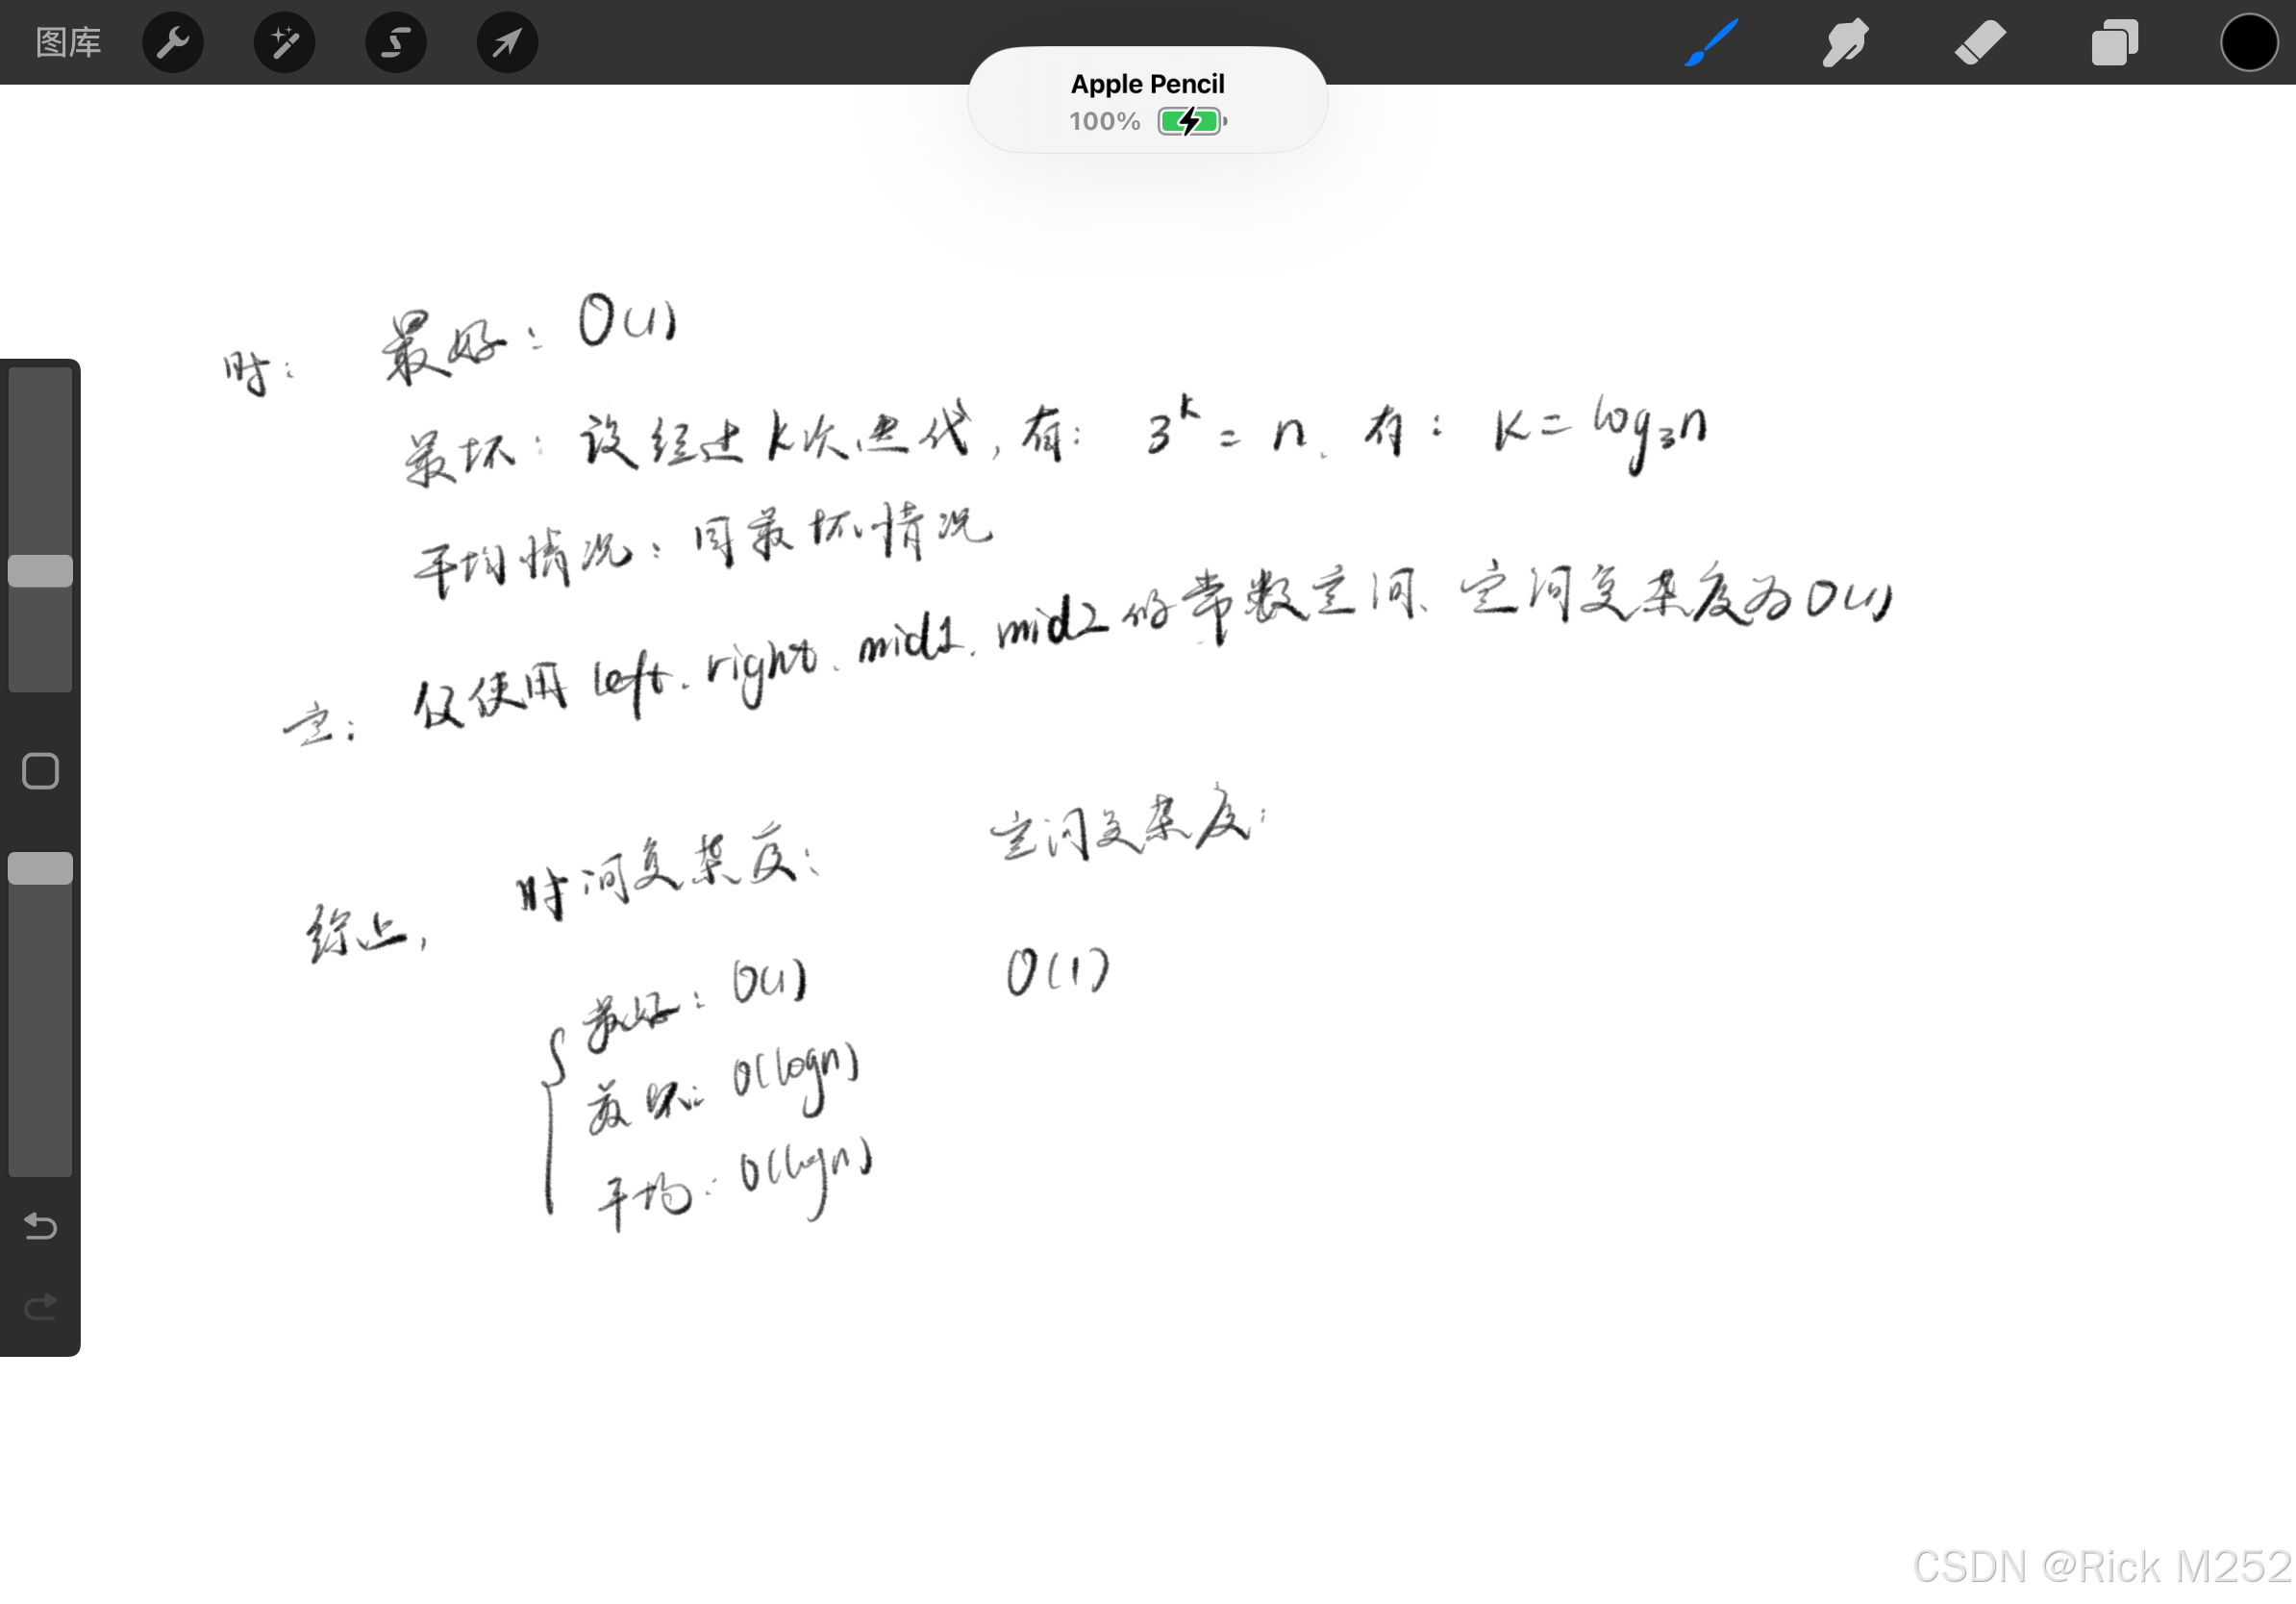 图库
Apple Pencil
100%
时: 最好: O(1)
最坏: 设经过k次迭代,有: 3^k = n. 有: k = log₃n
平均情况: 同最坏情况
空: 仅使用left、right、mid1、mid2的常数空间、空间复杂度为O(1)
综上, 时间复杂度: 空间复杂度:
最好: O(1) O(1)
最坏: O(logn)
平均: O(logn)
CSDN @Rick M252